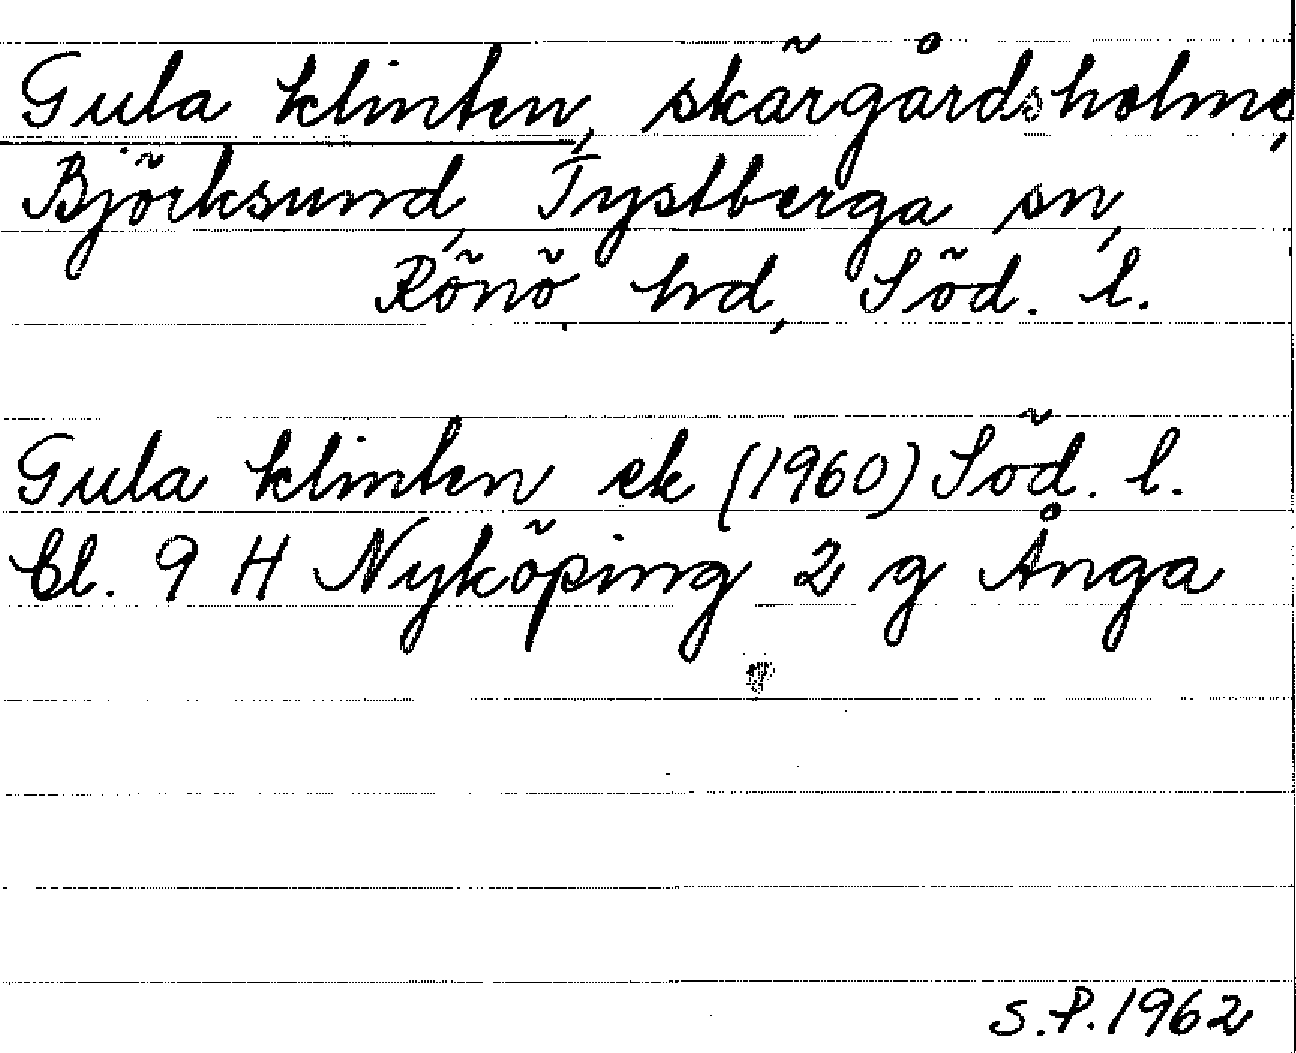 Gula klinten, skärgårdsholme,
Björksund, Tystberga sn,
Rönö hd, Söd. l.
Gula klinten ek (1960) Söd. l.
bl. 9 H Nyköping 2 g Ånga
S.P. 1962